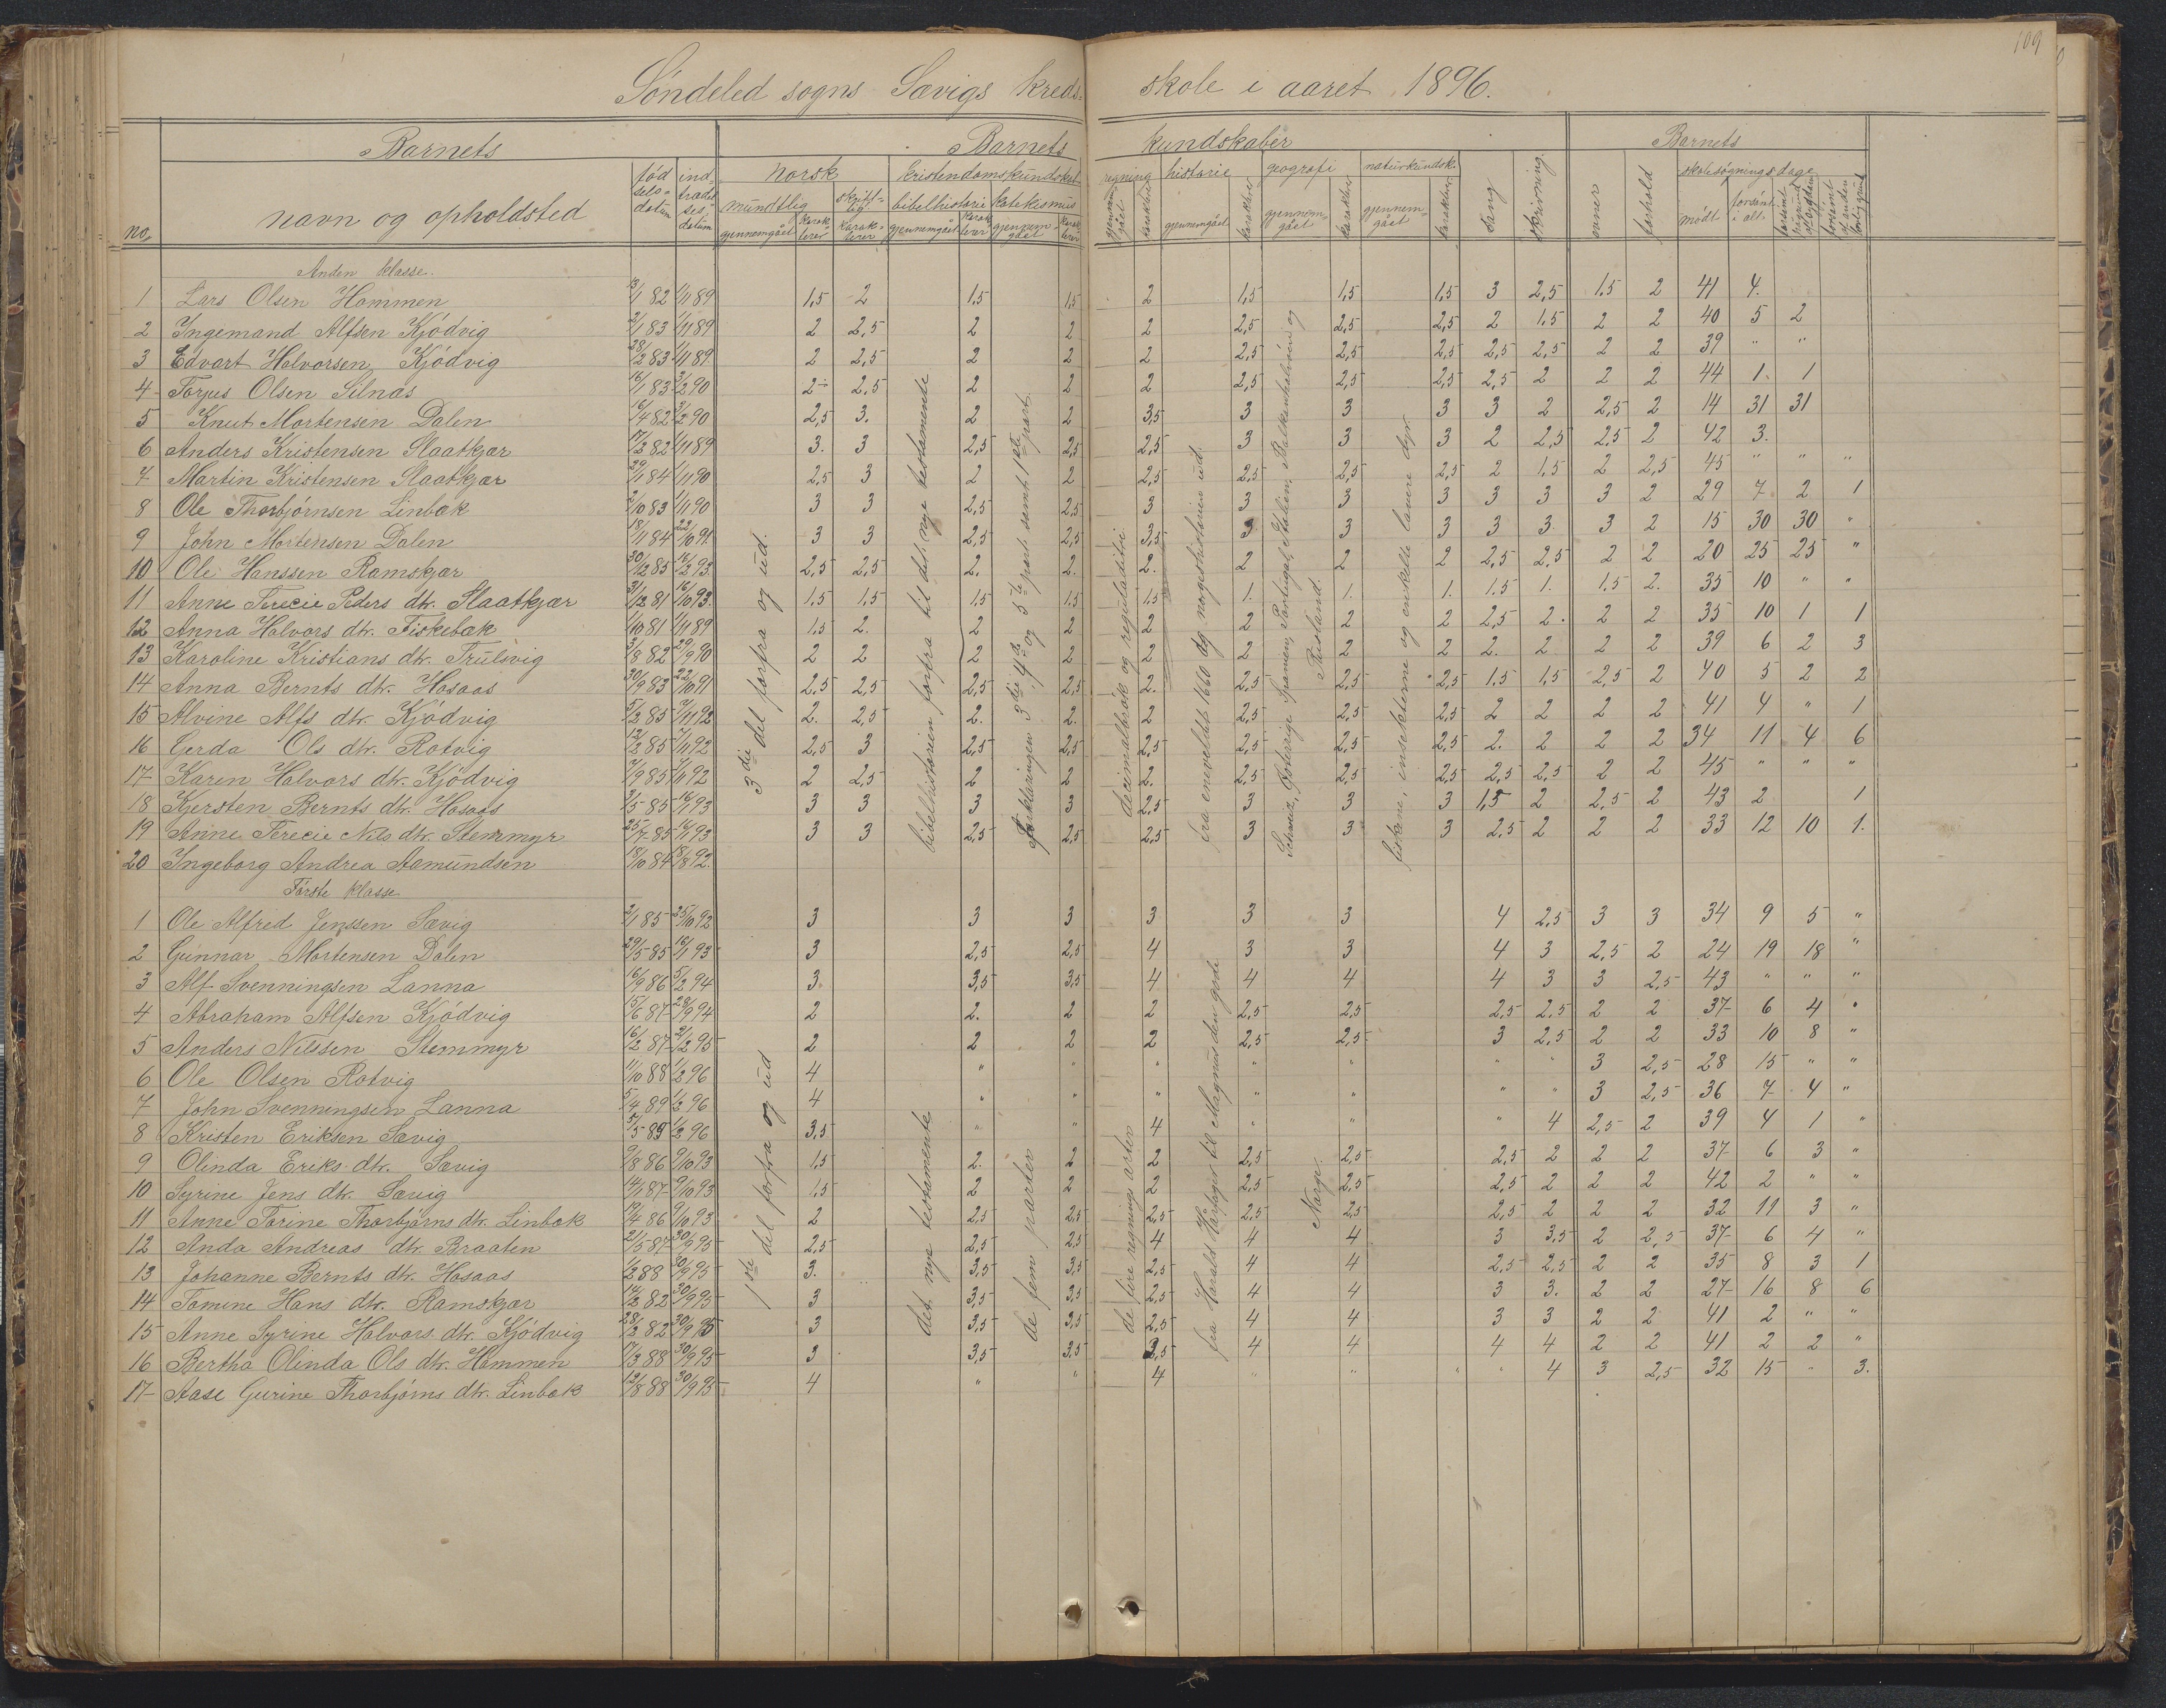 109
Søndeled sogns Sævigs kreds- skole i aaret 1896.
Barnets Barnets kundskaber Barnets
no. navn og opholdsted fødselsdatum indtrædelsesdatum norsk kristendomskundskab regning historie geografi naturkundsk. sang skrivning evner forhold skolesøgningsdage
mundtlig skriftlig bibelhistorie katekismus mødt forsømt i alt
gjennemgaaet karakterer karakterer gjennemgaaet karakterer gjennemgaaet karakterer
Anden klasse.
1 Lars Olsen Hammen 13/1 82 1/11 89 1,5 2 1,5 1,5 2 1,5 1,5 1,5 3 2,5 1,5 2 41 4.
2 Ingemand Alfsen Kjødvig 2/1 83 1/11 89 2 2,5 2 2 2 2,5 2,5 2,5 2 1,5 2 2 40 5 2
3 Edvart Halvorsen Kjødvig 28/2 83 1/11 89 2 2,5 2 2 2 2,5 2,5 2,5 2,5 2,5 2 2 39 " "
4 Torjus Olsen Silnæs 16/1 83 3/2 90 2 2,5 2 2 2 2,5 2,5 2,5 2,5 2 2 2 44 1 1
5 Knut Mortensen Dalen 6/4 82 3/2 90 2,5 3. 2 2 3,5 3 3 3 3 2 2,5 2 14 31 31
6 Anders Kristensen Slaatkjær 17/2 82 1/11 89 3. 3 2,5 2,5 2,5 3 3 3 2 2,5 2,5 2 42 3.
7 Martin Kristensen Slaatkjær 29/1 84 1/11 90 2,5 3 2 2 2,5 2,5 2,5 2,5 2 1,5 2 2,5 45 " " "
8 Ole Thorbjørnsen Linbæk 2/10 83 1/11 90 3 3 2,5 2,5 3 3 3 3 3 3 3 2 29 7 2 1
9 John Mortensen Dalen 18/11 84 22/10 91 3 3 2,5 2,5 3,5 3 3 3 3 3. 3 2 15 30 30 "
10 Ole Hanssen Ramskjær 30/12 85 16/2 93 2,5 2,5 2. 2. 2. 2 2 2 2,5 2,5 2 2 20 25 25 "
11 Anne Terecie Peders dtr. Slaatkjær 31/12 81 16/10 93. 1,5 1,5 1,5 1,5 1,5 1. 1. 1. 1.5 1. 1,5 2. 35 10 " "
12 Anna Halvors dtr. Fiskebæk 1/10 81 1/11 89 1,5 2. 2 2 2 2 2 2 2,5 2. 2 2 35 10 1 1
13 Karoline Kristians dtr. Trulsvig 3/8 82 29/9 90 2 2 2 2 2 2 2 2 2. 2. 2 2 39 6 2 3
14 Anna Bernts dtr. Hosaas 30/9 83 22/10 91 2,5 2,5 2,5 2,5 2. 2,5 2,5 2,5 1,5 1,5 2,5 2 40 5 2 2
15 Alvine Alfs dtr. Kjødvig 5/2 85 7/11 92 2. 2,5 2. 2. 2 2,5 2,5 2,5 2 2 2 2 41 4 " 1
16 Gerda Ols dtr. Rotvig 12/2 85 7/11 92 2,5 3 2,5 2,5 2,5 2,5 2,5 2,5 2. 2 2 2 34 11 4 6
17 Karen Halvors dtr. Kjødvig 7/9 85 7/11 92 2 2,5 2 2 2. 2,5 2,5 2,5 2,5 2,5 2 2 45 " " "
18 Kjersten Bernts dtr. Hosaas 3/5 85 16/1 93 3 3 3 3 2,5 3 3 3 1,5 2 2,5 2 43 2 1
19 Anne Terecie Nils dtr. Stemmyr 25/7 85 16/1 93 3 3 2,5 2,5 2,5 3 3 3 2,5 2 2 2 33 12 10 1.
20 Ingeborg Andrea Aamundsen 18/10 84 18/8 92.
3die del forfra og ud.
bibelhistorien forfra til det nye testamende
forklaringen 3die, 4de og 5te part samt 1ste part.
decimalbrøk og reguladetri
fra enevældet 1660 og norgeshistorien ud.
Schweiz, Østerrige Spanien, Portugal, Italien, Balkanhalvøen og Rusland.
fiskene, insekterne og enkelte lavere dyr.
Første klasse
1 Ole Alfred Jenssen Sævig 2/1 85 25/10 92 3 3 3 3 3 3 4 2,5 3 3 34 9 5 "
2 Gunnar Mortensen Dalen 29/5 85 16/1 93 3 2,5 2,5 4 3 3 4 3 2,5 2 24 19 18 "
3 Alf Svenningsen Lanna 16/9 86 5/2 94 3. 3,5 3,5 4 4 4 4 3 3 2,5 43 " " "
4 Abraham Alfsen Kjødvig 15/6 87 28/9 94 2 2. 2 2 2,5 2,5 2,5 2,5 2 2 37 6 4 "
5 Anders Nilssen Stemmyr 16/2 87 2/12 95 2 2 2 2 2,5 2,5 3 2,5 2 2 33 10 8 "
6 Ole Olsen Rotvig 11/10 88 1/2 96 4 " " " " " " 3 2,5 28 15 " "
7 John Svenningsen Lanna 5/4 89 1/2 96 4 " " " " " " " 3 2,5 36 7 4 "
8 Kristen Eriksen Sævig 5/5 89 1/2 96 3,5 " " 4 " " " 4 2,5 2 39 4 1 "
9 Olinda Eriks dtr. Sævig 9/8 86 9/10 93 1,5 2. 2 2 2,5 2,5 2,5 2 2 2 37 6 3 "
10 Syrine Jens dtr. Sævig 14/1 87 9/10 93 1,5 2 2 2 2,5 2,5 2,5 2 2 2 42 2 " "
11 Anne Torine Thorbjørns dtr. Linbæk 19/4 86 9/10 93 2 2,5 2,5 2,5 2,5 2,5 2,5 2 2 2 32 11 3 "
12 Anda Andreas dtr. Braaten 21/5 87 30/9 95 2,5 2,5 2,5 4 4 4 3 3,5 2 2,5 37 6 4 "
13 Johanne Bernts dtr. Hosaas 1/2 88 30/9 95 3. 3,5 3,5 2,5 4 4 2,5 2,5 2 2 35 8 3 1
14 Tomine Hans dtr. Ramskjær 14/2 82 30/9 95 3 3,5 3,5 2,5 4 4 3 3. 2 2 27 16 8 6
15 Anne Syrine Halvors dtr. Kjødvig 28/2 82 30/9 95 3 3,5 3,5 2,5 4 4 3 3 2 2 41 2 " "
16 Bertha Olinda Ols dtr. Hammen 17/3 88 30/9 95 3 3,5 3,5 3,5 4 4 4 4 2 2 41 2 2 "
17 Aase Gurine Thorbjørns dtr. Linbæk 12/8 88 30/9 95 4 " " 4 " " " " 4 3 2,5 32 15 " 3.
1ste del forfra og ud
det nye testamente
de fem parter
de fire regnings arter
fra Harald Haarfager til Magnus den gode
Norge.